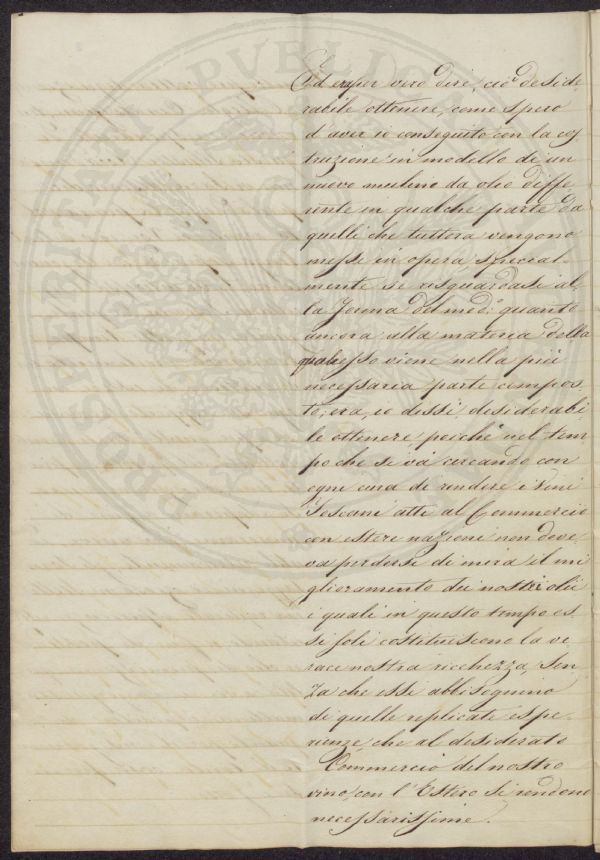 PROSPERITATI PVBLICAE
Ed era per vero dire, ciò deside-
rabile ottenere, come spero
d'aver io conseguito con la cos
truzione in modello di un
nuovo mulino da olio diffe
rente in qualche parte da
quelli che tuttora vengono
messi in opera special-
mente se risguardasi al
la forma del med.º quanto
ancora alla materia della
quale esso viene nella più
necessaria parte compos
to, era, io dissi, desiderabi
le ottenere poichè nel tem
po che si va cercando con
ogni cura di rendere i Vini
Toscani atti al Commercio
con estere nazioni non deve
va perdersi di mira il mi
glioramento dei nostri olii
i quali in questo tempo es
si soli costituiscono la ve
race nostra ricchezza, Sen
za che essi abbisognino
di quelle replicate espe-
rienze, che al desiderato
Commercio del nostro
vino, con l'Estero si rendono
necessarissime.